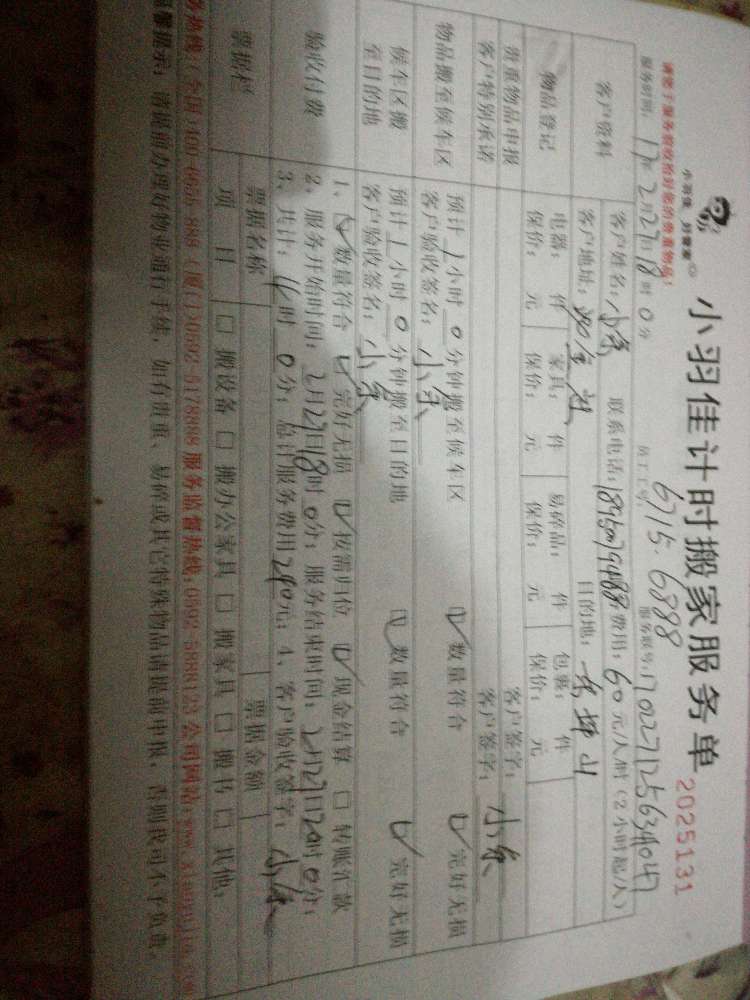 小羽佳 好管家
小羽佳计时搬家服务单
2025131
请您于服务前收检好您的贵重物品！
服务时间：17年2月27日18时0分 员工工号：6715.6888 服务联号：170227125634047
客户资料
客户姓名：小余 联系电话：费用：60元/人/时（2小时起/人）
客户地址： 目的地：
物品登记
电器： 件 家具： 件 易碎品： 件 包裹： 件
保价： 元 保价： 元 保价： 元 保价： 元
贵重物品申报 客户签字：
客户特别承诺 客户签字：小余
物品搬至候车区
预计1小时0分钟搬至候车区 数量符合 完好无损
客户验收签名：小余
候车区搬至目的地
预计1小时0分钟搬至目的地 数量符合 完好无损
客户验收签名：小余
验收付费
1、数量符合 完好无损 按需归位 现金结算 □ 转账汇款
2、服务开始时间：2月27日18时0分；服务结束时间：2月27日20时0分；
3、共计：4时0分；总计服务费用240元；4、客户验收签字：小余
票据栏
票据名称 票据金额
项目 □ 搬设备 □ 搬办公家具 □ 搬家具 □ 搬书 □ 其他：
务热线：（全国）400-0626-888（厦门）0592-5178888 服务监督热线：0592-5888123 公司网站：www.xiaoyujia.com
温馨提示：请提前办理好物业通行手续，如有贵重、易碎或其它特殊物品请提前申报，否则我司不予负责。